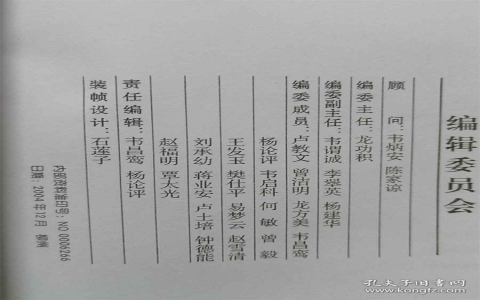 编辑委员会
顾　问：韦炳安 陈家谅
编委主任：龙功积
编委副主任：韦谓诚 李举英 杨建华
编委成员：卢教文 曾洁明 龙方美 韦昌鸾
杨论评 韦启科 何敏 曾毅
王发玉 樊仕平 易梦云 赵雪清
刘承幼 蒋业安 卢土培 钟德能
赵福明 覃太光
责任编辑：韦昌鸾 杨论评
装帧设计：石莲子
NO 0006266
日期：2004年12月 柳州
孔夫子旧书网
www.kongfz.com